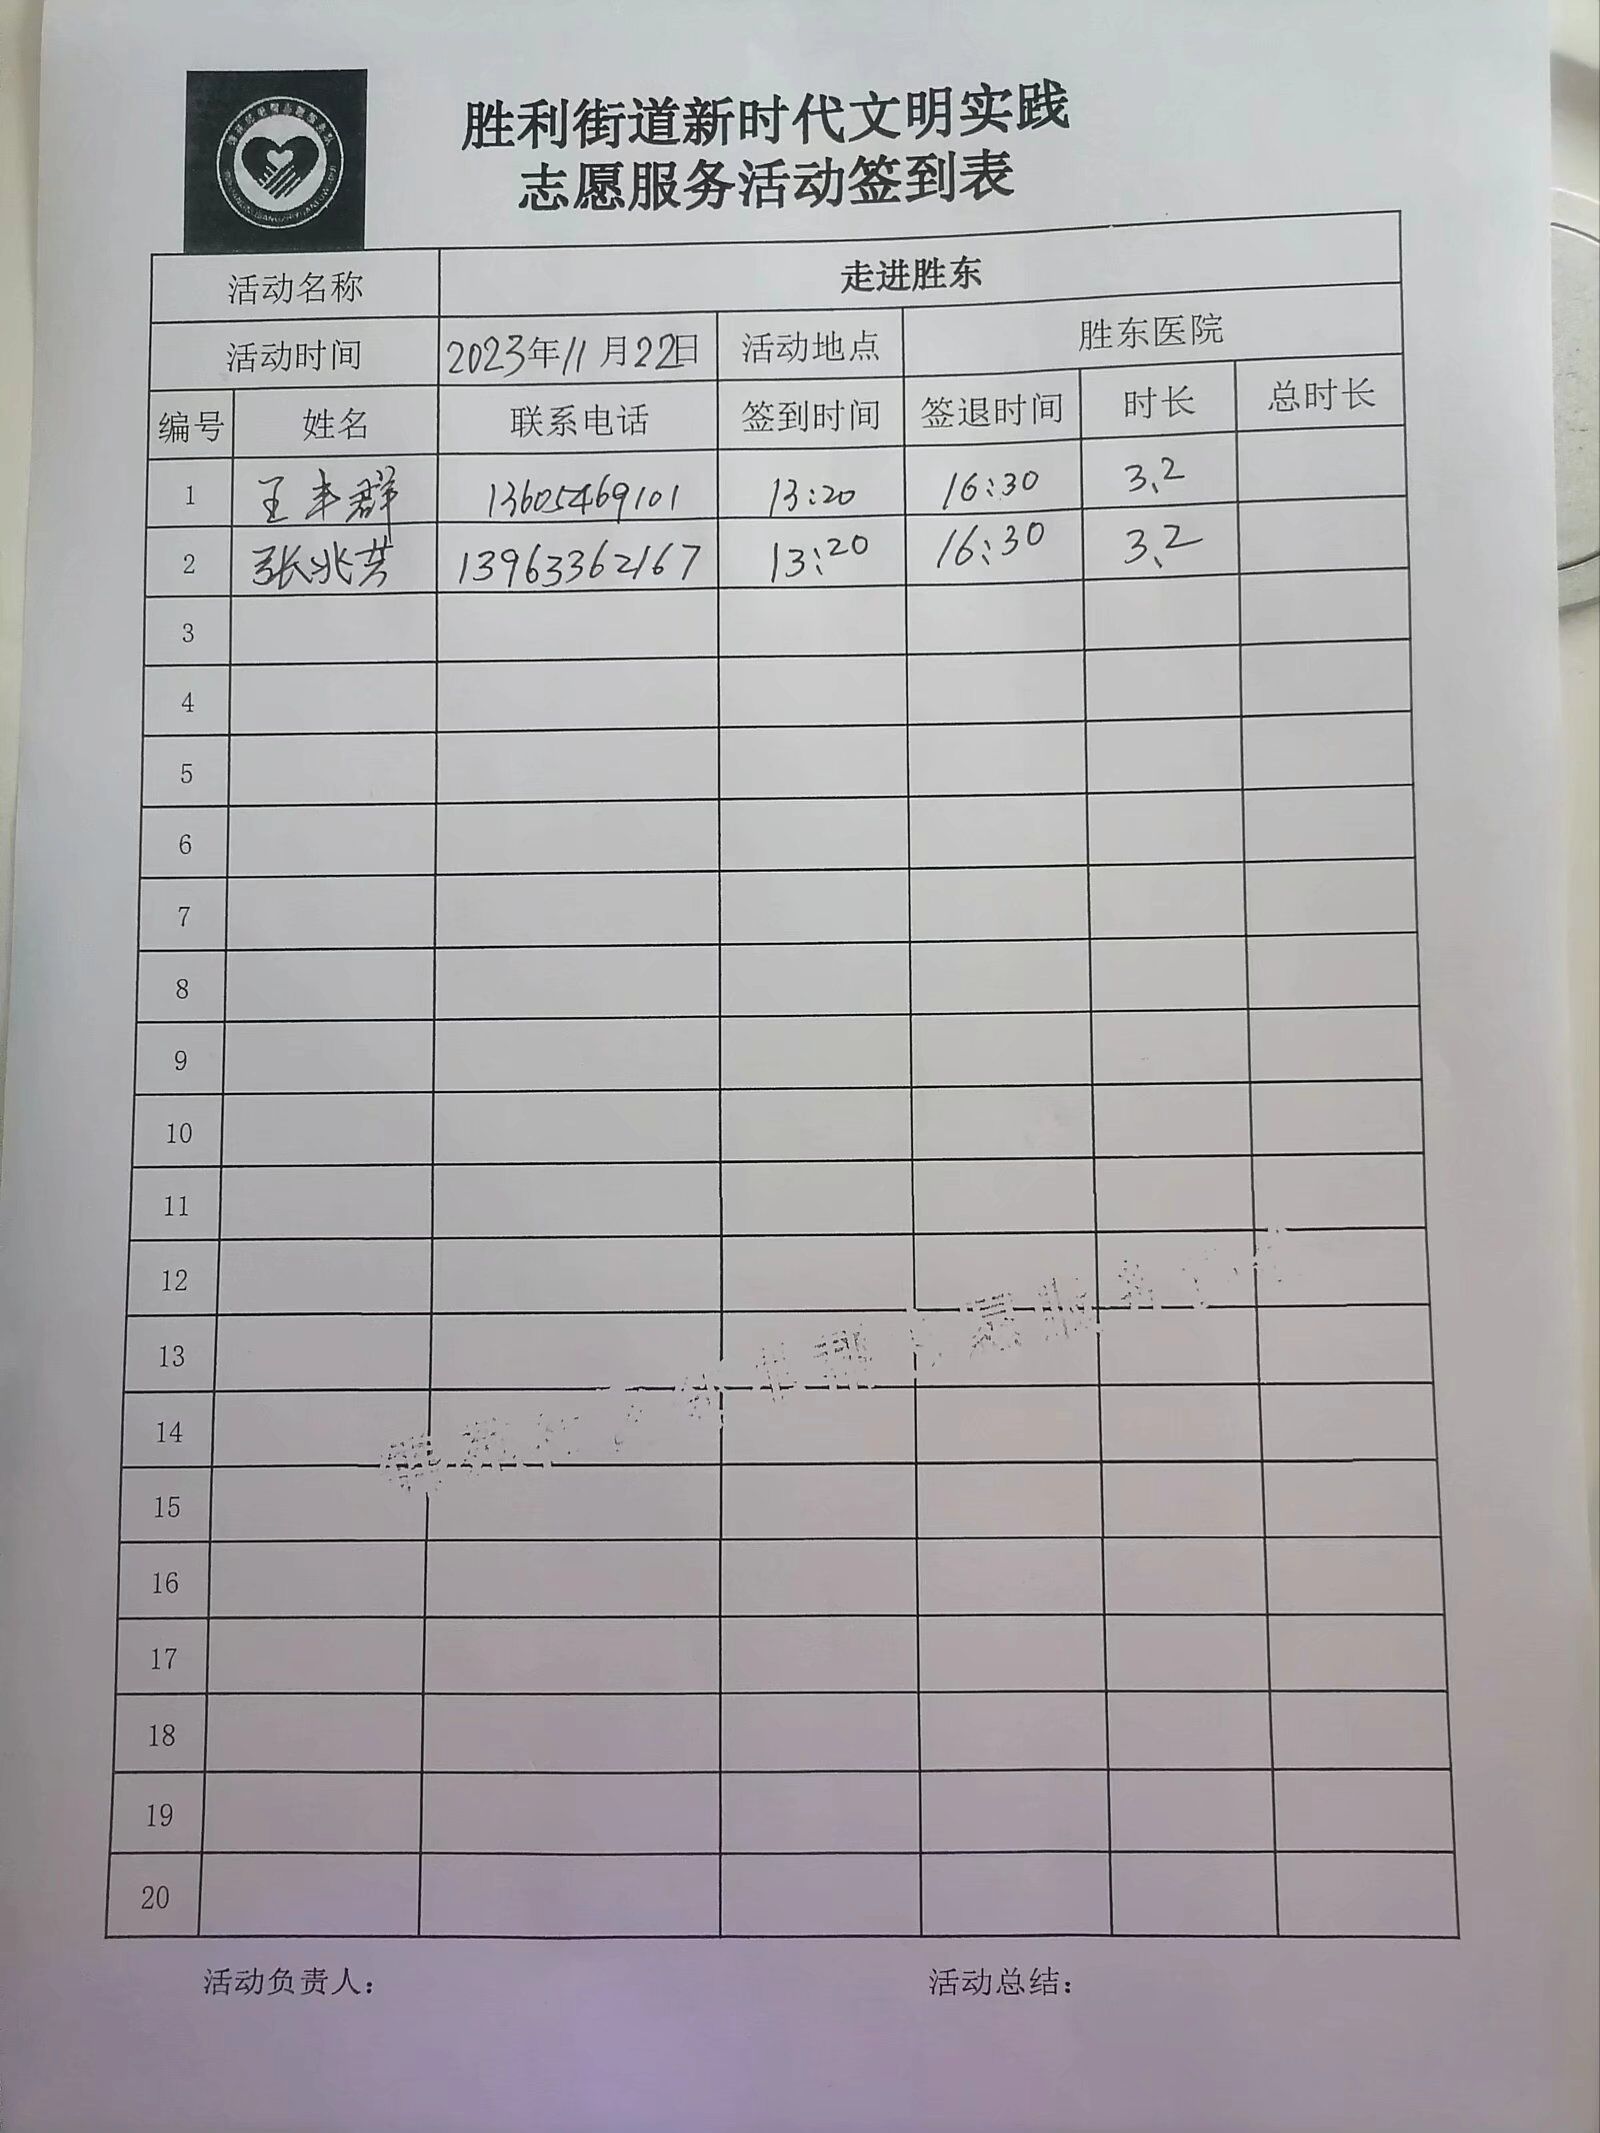 胜利街道新时代文明实践
志愿服务活动签到表
活动名称 走进胜东
活动时间 2023年11月22日 活动地点 胜东医院
编号 姓名 联系电话 签到时间 签退时间 时长 总时长
1 王丰群 13605469101 13:20 16:30 3.2
2 张兆芸 13963362167 13:20 16:30 3.2
3
4
5
6
7
8
9
10
11
12
13
14
15
16
17
18
19
20
活动负责人： 活动总结：